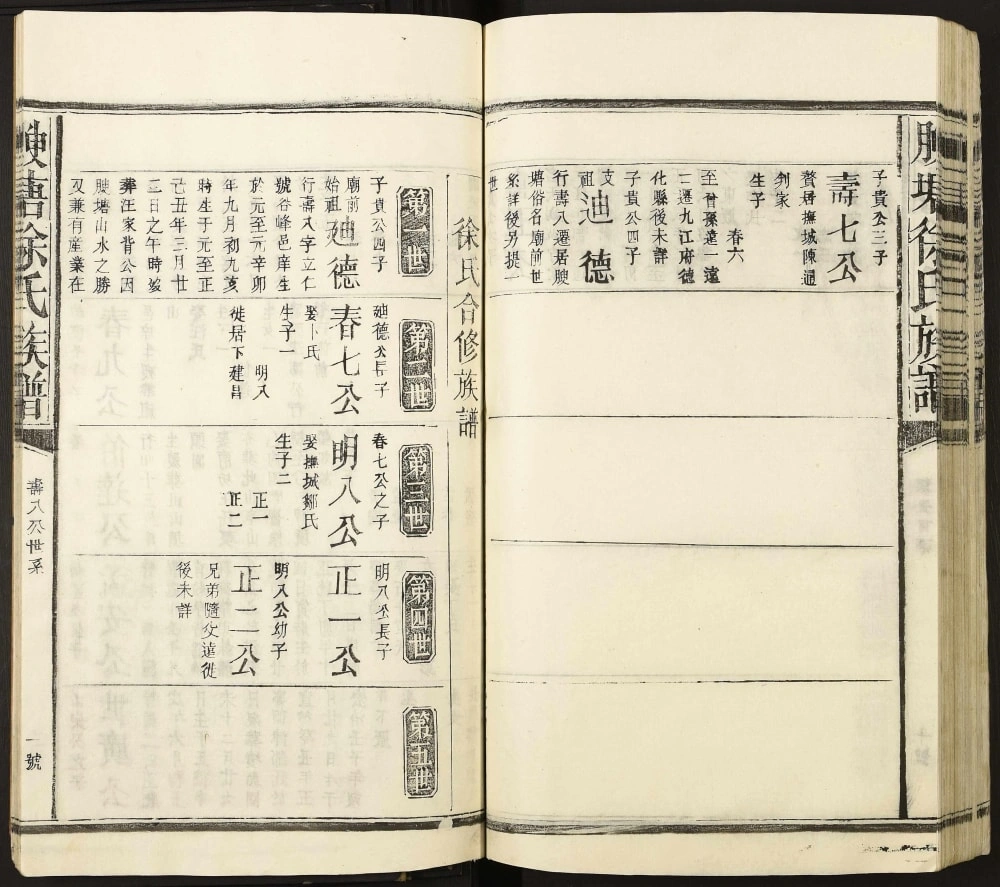 子貴公三子
壽七公
贅居撫城陳通
判家
生子
春六
至晉孫遠一遠
二遷九江府德
化縣後未詳
子貴公四子
支祖迪德
行壽八遷居腴
塘俗名廟前世
系詳後另提一
世
徐氏合修族譜
第一世
子貴公四子
廟前始祖迪德
行壽八字立仁
號谷峰邑庠生
於元至元辛卯
年九月初九亥
時生于元至正
己丑年三月廿
三日之午時
葬汪家背公因
腴塘山水之勝
又兼有產業在
第二世
廸德公長子
春七公
娶卜氏
生子一
明八
徙居下建昌
第三世
春七公之子
明八公
娶撫城鄒氏
生子二
正一
正二
第四世
明八公長子
正一公
明八公幼子
正二公
兄弟隨父遠徙
後未詳
第五世
腴塘徐氏族譜
壽八公世系
一號